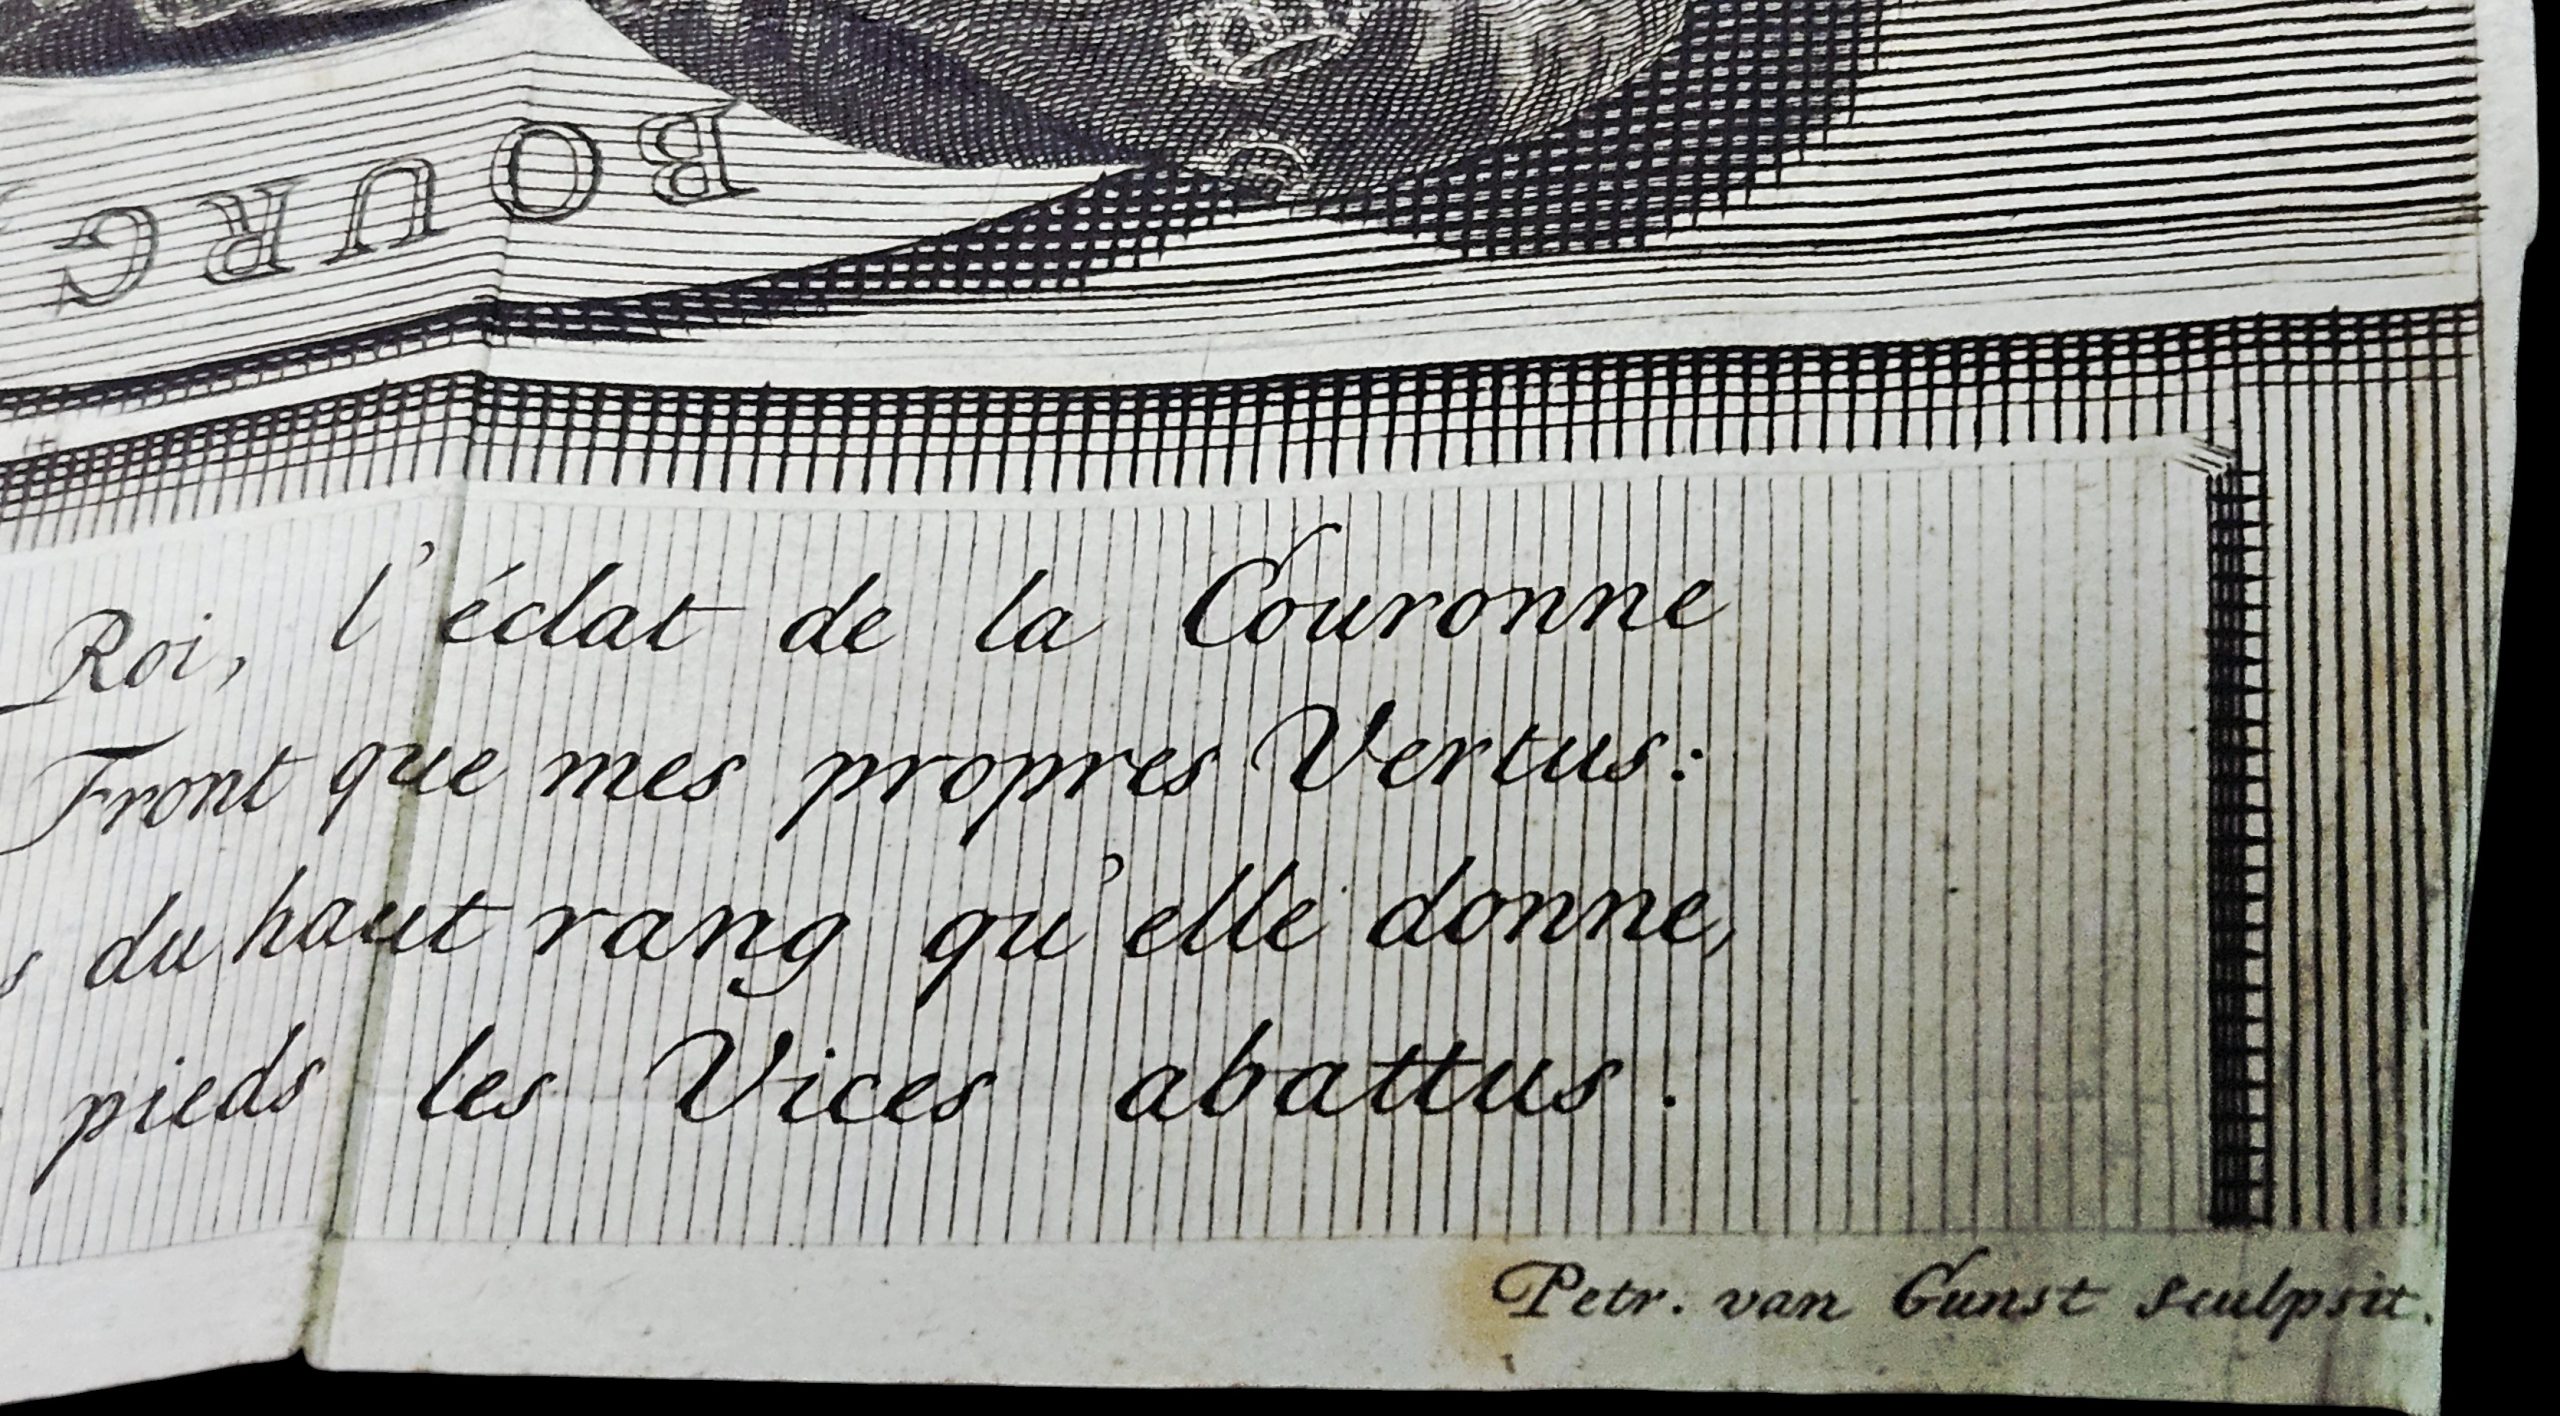 BOURG
Roi, l'éclat de la Couronne
Front que mes propres Vertus:
s du haut rang qu'elle donne,
pieds les Vices abattus.
Petr. van Gunst sculpsit.